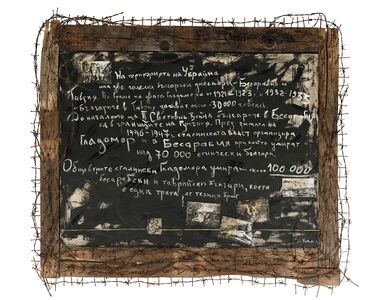 На територията на Украйна
има две големи български диаспори - Бесарабия и
Таврия. По време на двата Гладомора от 1921-1923 и 1932-1933
българите в Таврия са около 30 000 човека
До началото на II Световна война българите в Бесарабия
са в границите на Румъния. През зимата на
1946-1947 сталинската власт организира
Гладомор и в Бесарабия при който умират
над 70 000 етнически българи.
Общо в трите сталински Гладомора умират около 100 000
бесарабски и таврийски българи, което
е една трета от техния брой